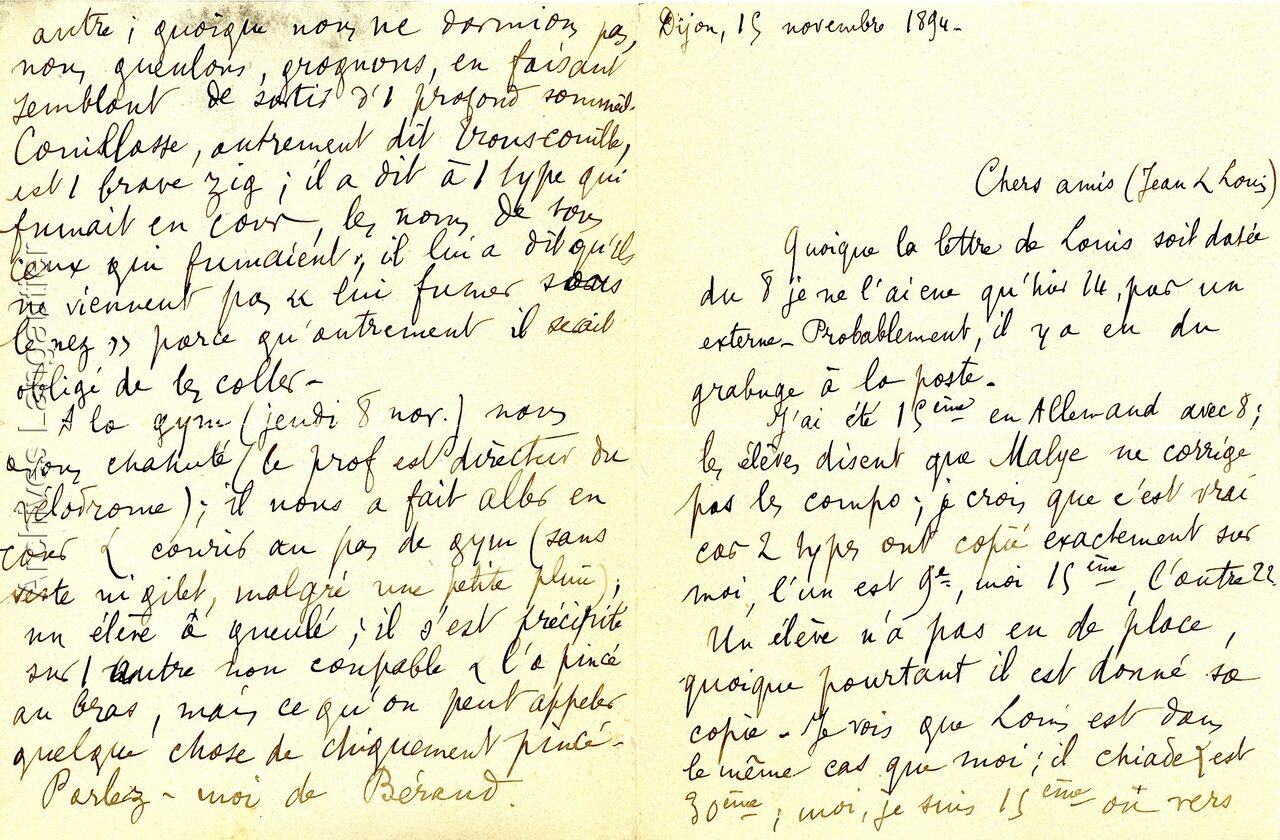 Dijon, 15 novembre 1894.
Chers amis (Jean & Louis)
Quoique la lettre de Louis soit datée
du 8 je ne l'ai eue qu'hier 14, par un
externe. Probablement, il y a eu du
grabuge à la poste.
J'ai été 15ème en Allemand avec 8 ;
les élèves disent que Malye ne corrige
pas les compo ; je crois que c'est vrai
car 2 types ont copié exactement sur
moi, l'un est 9e, moi 15ème, l'autre 22
Un élève n'a pas eu de place,
quoique pourtant il est donné sa
copie. Je vois que Louis est dans
le même cas que moi ; il chiade & est
30ème ; moi, je suis 15ème où vers
autre ; quoique nous ne dormions pas,
nous gueulons, grognons, en faisant
semblant de sortir d'1 profond sommeil.
Couillasse, autrement dit Trouscouille,
est 1 brave zig ; il a dit à 1 type qui
fumait en cour, les noms de tous
ceux qui fumaient, il lui a dit qu'ils
ne viennent pas « lui fumer sous
le nez » parce qu'autrement il serait
obligé de les coller.
A la gym (jeudi 8 nov.) nous
avons chahuté (le prof est directeur du
vélodrome) ; il nous a fait aller en
cour & courir au pas de gym (sans
veste ni gilet, malgré une petite pluie) ;
un élève a gueulé ; il s'est précipité
sur 1 autre non coupable & l'a pincé
au bras, mais ce qu'on peut appeler
quelque chose de chiquement pincé.
Parlez-moi de Béraud.
Archives Lagarrigue